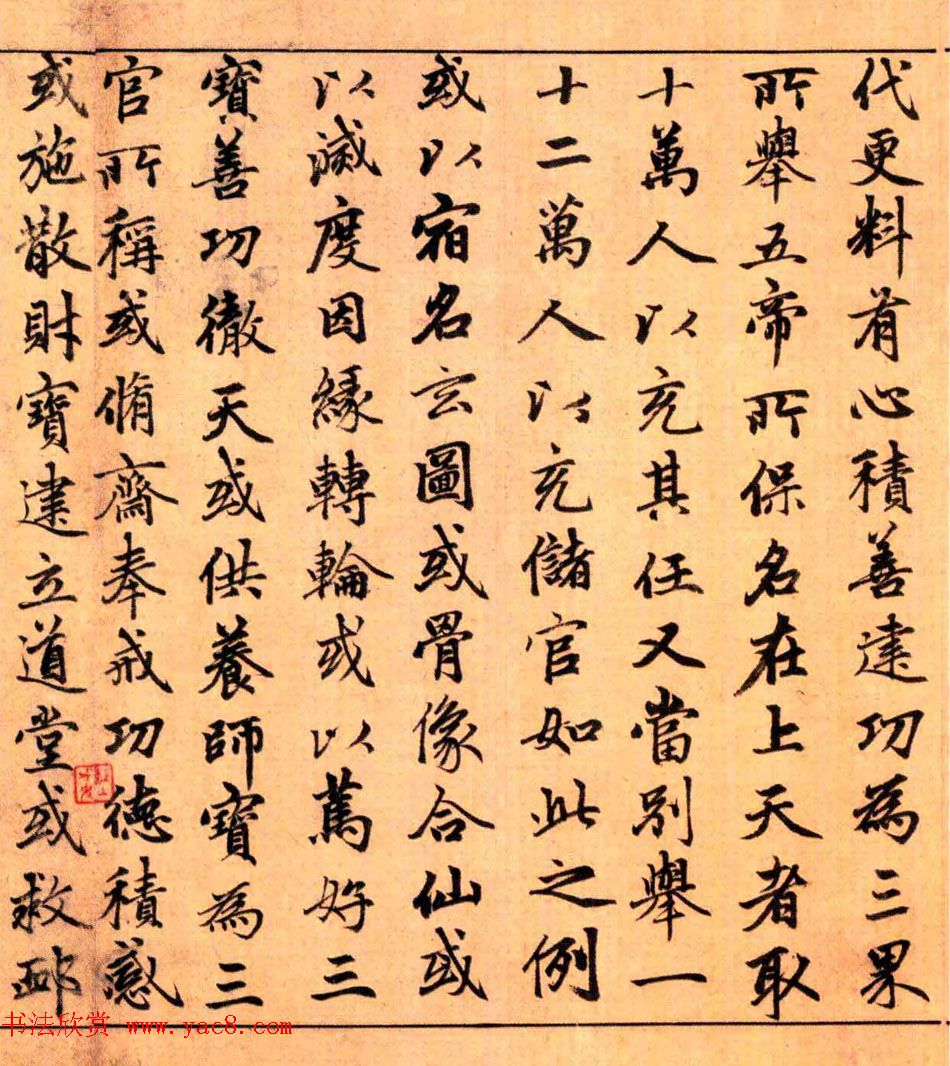 代更料有心積善建功為三果
所舉五帝所保名在上天者取
十萬人以充其任又當別舉一
十二萬人以充儲官如此之例
或以宿名玄圖或骨像合仙或
以滅度因緣轉輪或以篤好三
寶善功徹天或供養師寶為三
官所稱或脩齋奉戒功德積感
或施散財寶建立道堂或救卹
书法欣赏 www.yac8.com